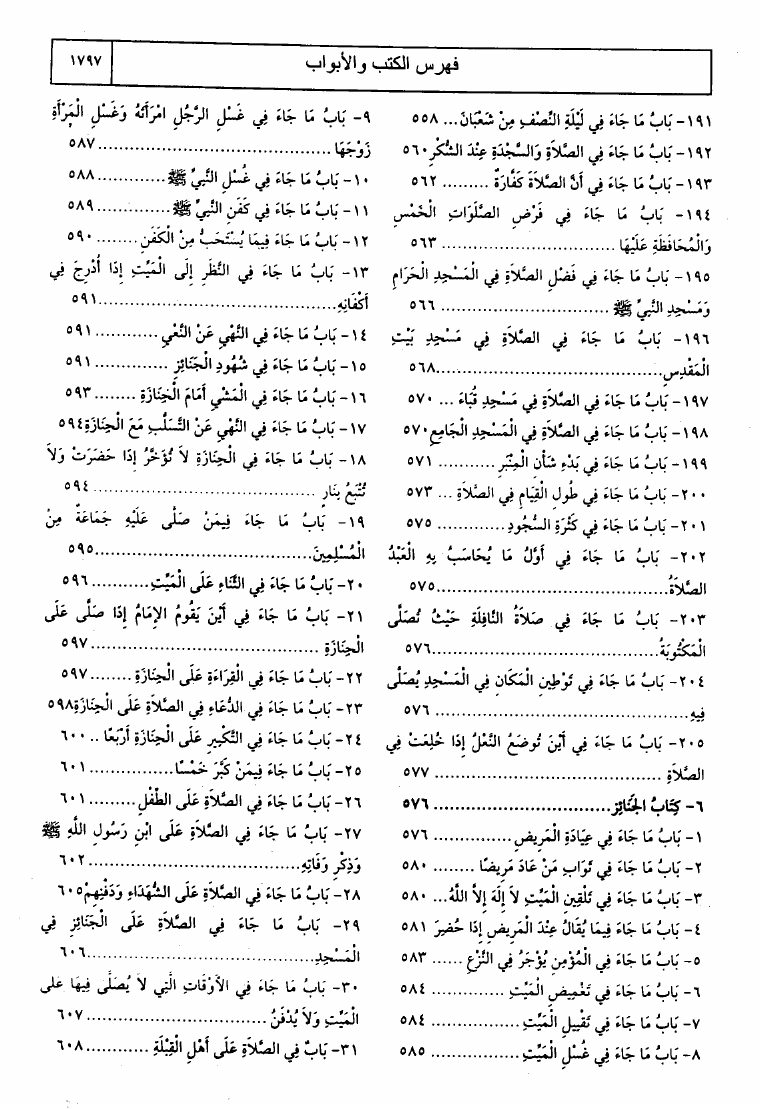 فهرس الكتب والأبواب
١٧٩٧
١٩١- بَابُ مَا جَاءَ فِي لَيْلَةِ النِّصْفِ مِنْ شَعْبَانَ... ٥٥٨
١٩٢- بَابُ مَا جَاءَ فِي الصَّلاَةِ وَالسَّجْدَةِ عِنْدَ الشُّكْرِ ٥٦٠
١٩٣- بَابُ مَا جَاءَ فِي أَنَّ الصَّلاَةَ كَفَّارَةٌ ......... ٥٦٢
١٩٤- بَابُ مَا جَاءَ فِي فَرْضِ الصَّلَوَاتِ الْخَمْسِ
وَالْمُحَافَظَةِ عَلَيْهَا ................................ ٥٦٣
١٩٥- بَابُ مَا جَاءَ فِي فَضْلِ الصَّلاَةِ فِي الْمَسْجِدِ الْحَرَامِ
وَمَسْجِدِ النَّبِيِّ ﷺ ............................ ٥٦٦
١٩٦- بَابُ مَا جَاءَ فِي الصَّلاَةِ فِي مَسْجِدِ بَيْتِ
الْمَقْدِسِ...................................... ٥٦٨
١٩٧- بَابُ مَا جَاءَ فِي الصَّلاَةِ فِي مَسْجِدِ قُبَاءَ ... ٥٧٠
١٩٨- بَابُ مَا جَاءَ فِي الصَّلاَةِ فِي الْمَسْجِدِ الْجَامِعِ ٥٧٠
١٩٩- بَابُ مَا جَاءَ فِي بَدْءِ شَأْنِ الْمِنْبَرِ .......... ٥٧١
٢٠٠- بَابُ مَا جَاءَ فِي طُولِ الْقِيَامِ فِي الصَّلاَةِ ... ٥٧٣
٢٠١- بَابُ مَا جَاءَ فِي كَثْرَةِ السُّجُودِ ........... ٥٧٥
٢٠٢- بَابُ مَا جَاءَ فِي أَوَّلُ مَا يُحَاسَبُ بِهِ الْعَبْدُ
الصَّلاَةُ....................................... ٥٧٥
٢٠٣- بَابُ مَا جَاءَ فِي صَلاَةُ النَّافِلَةِ حَيْثُ تُصَلَّى
الْمَكْتُوبَةُ...................................... ٥٧٦
٢٠٤- بَابُ مَا جَاءَ فِي تَوْطِينِ الْمَكَانِ فِي الْمَسْجِدِ يُصَلَّى
فِيهِ........................................... ٥٧٦
٢٠٥- بَابُ مَا جَاءَ فِي أَيْنَ تُوضَعُ النَّعْلُ إِذَا خُلِعَتْ فِي
الصَّلاَةِ ...................................... ٥٧٧
٦- كِتَابُ الْجَنَائِزِ................................ ٥٧٦
١- بَابُ مَا جَاءَ فِي عِيَادَةِ الْمَرِيضِ ............. ٥٧٦
٢- بَابُ مَا جَاءَ فِي ثَوَابِ مَنْ عَادَ مَرِيضًا ....... ٥٨٠
٣- بَابُ مَا جَاءَ فِي تَلْقِينِ الْمَيِّتِ لاَ إِلَهَ إِلاَّ اللَّهُ... ٥٨٠
٤- بَابُ مَا جَاءَ فِيمَا يُقَالُ عِنْدَ الْمَرِيضِ إِذَا حُضِرَ ٥٨١
٥- بَابُ مَا جَاءَ فِي الْمُؤْمِنِ يُؤْجَرُ فِي النَّزْعِ ...... ٥٨٣
٦- بَابُ مَا جَاءَ فِي تَغْمِيضِ الْمَيِّتِ ............ ٥٨٤
٧- بَابُ مَا جَاءَ فِي تَقْبِيلِ الْمَيِّتِ .............. ٥٨٤
٨- بَابُ مَا جَاءَ فِي غَسْلِ الْمَيِّتِ............... ٥٨٥
٩- بَابُ مَا جَاءَ فِي غَسْلِ الرَّجُلِ امْرَأَتَهُ وَغَسْلِ الْمَرْأَةِ
زَوْجَهَا ........................................ ٥٨٧
١٠- بَابُ مَا جَاءَ فِي غُسْلِ النَّبِيِّ ﷺ ............ ٥٨٨
١١- بَابُ مَا جَاءَ فِي كَفَنِ النَّبِيِّ ﷺ ............. ٥٨٩
١٢- بَابُ مَا جَاءَ فِيمَا يُسْتَحَبُّ مِنْ الْكَفَنِ ........ ٥٩٠
١٣- بَابُ مَا جَاءَ فِي النَّظَرِ إِلَى الْمَيِّتِ إِذَا أُدْرِجَ فِي
أَكْفَانِهِ........................................ ٥٩١
١٤- بَابُ مَا جَاءَ فِي النَّهْيِ عَنْ النَّعْيِ ........... ٥٩١
١٥- بَابُ مَا جَاءَ فِي شُهُودِ الْجَنَائِزِ ............ ٥٩١
١٦- بَابُ مَا جَاءَ فِي الْمَشْيِ أَمَامَ الْجِنَازَةِ ........ ٥٩٣
١٧- بَابُ مَا جَاءَ فِي النَّهْيِ عَنْ التَّسَلُّبِ مَعَ الْجِنَازَةِ ٥٩٤
١٨- بَابُ مَا جَاءَ فِي الْجِنَازَةِ لاَ تُؤَخَّرُ إِذَا حَضَرَتْ وَلاَ
تُتْبَعُ بِنَارٍ ..................................... ٥٩٤
١٩- بَابُ مَا جَاءَ فِيمَنْ صَلَّى عَلَيْهِ جَمَاعَةٌ مِنْ
الْمُسْلِمِينَ..................................... ٥٩٥
٢٠- بَابُ مَا جَاءَ فِي الثَّنَاءِ عَلَى الْمَيِّتِ........... ٥٩٦
٢١- بَابُ مَا جَاءَ فِي أَيْنَ يَقُومُ الإِمَامُ إِذَا صَلَّى عَلَى
الْجِنَازَةِ ...................................... ٥٩٧
٢٢- بَابُ مَا جَاءَ فِي الْقِرَاءَةِ عَلَى الْجِنَازَةِ ........ ٥٩٧
٢٣- بَابُ مَا جَاءَ فِي الدُّعَاءِ فِي الصَّلاَةِ عَلَى الْجِنَازَةِ ٥٩٨
٢٤- بَابُ مَا جَاءَ فِي التَّكْبِيرِ عَلَى الْجِنَازَةِ أَرْبَعًا .. ٦٠٠
٢٥- بَابُ مَا جَاءَ فِيمَنْ كَبَّرَ خَمْسًا .............. ٦٠١
٢٦- بَابُ مَا جَاءَ فِي الصَّلاَةِ عَلَى الطِّفْلِ ......... ٦٠١
٢٧- بَابُ مَا جَاءَ فِي الصَّلاَةِ عَلَى ابْنِ رَسُولِ اللَّهِ ﷺ
وَذِكْرِ وَفَاتِهِ..................................... ٦٠٢
٢٨- بَابُ مَا جَاءَ فِي الصَّلاَةِ عَلَى الشُّهَدَاءِ وَدَفْنِهِمْ ٦٠٥
٢٩- بَابُ مَا جَاءَ فِي الصَّلاَةِ عَلَى الْجَنَائِزِ فِي
الْمَسْجِدِ...................................... ٦٠٦
٣٠- بَابُ مَا جَاءَ فِي الأَوْقَاتِ الَّتِي لاَ يُصَلَّى فِيهَا عَلَى
الْمَيِّتِ وَلاَ يُدْفَنُ .............................. ٦٠٧
٣١- بَابٌ فِي الصَّلاَةِ عَلَى أَهْلِ الْقِبْلَةِ ........... ٦٠٨